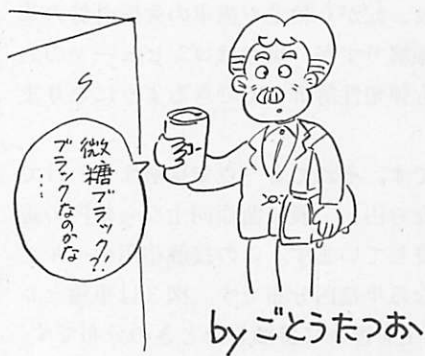 微糖ブラック?!
ブラックなのかな
…
byごとうたつお